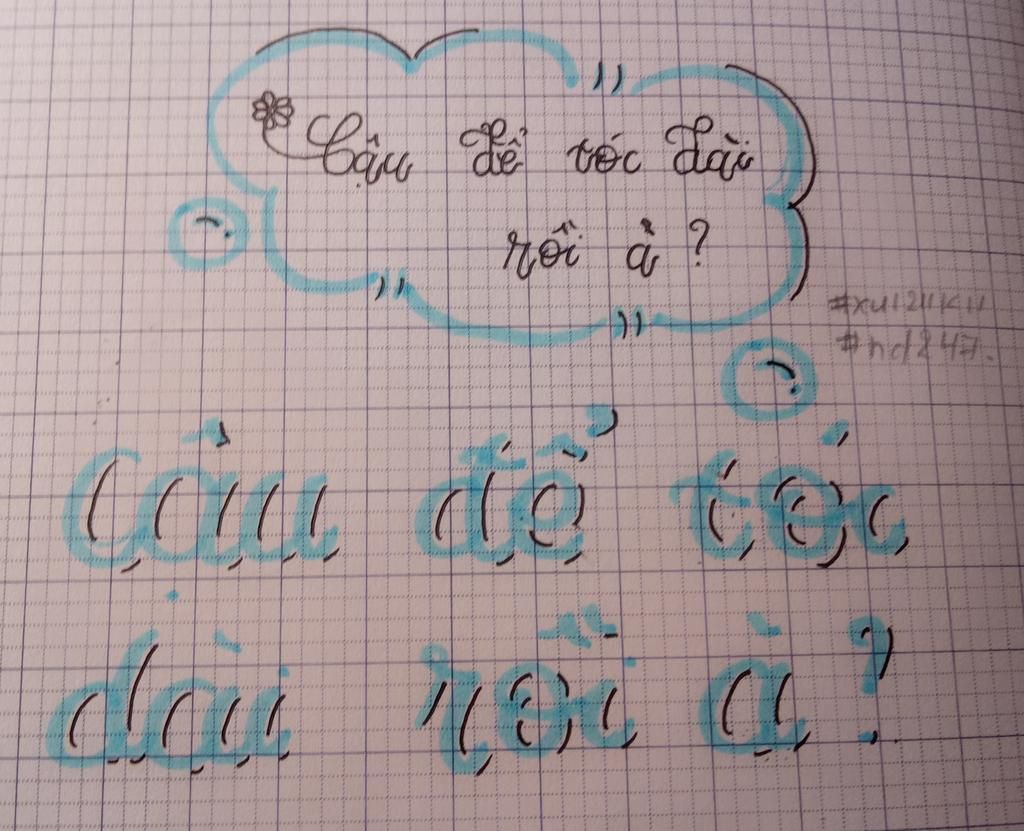 Cậu để tóc dài
rồi à ?
#xu1211k11
#nd247.
Cậu để tóc
dài rồi à ?